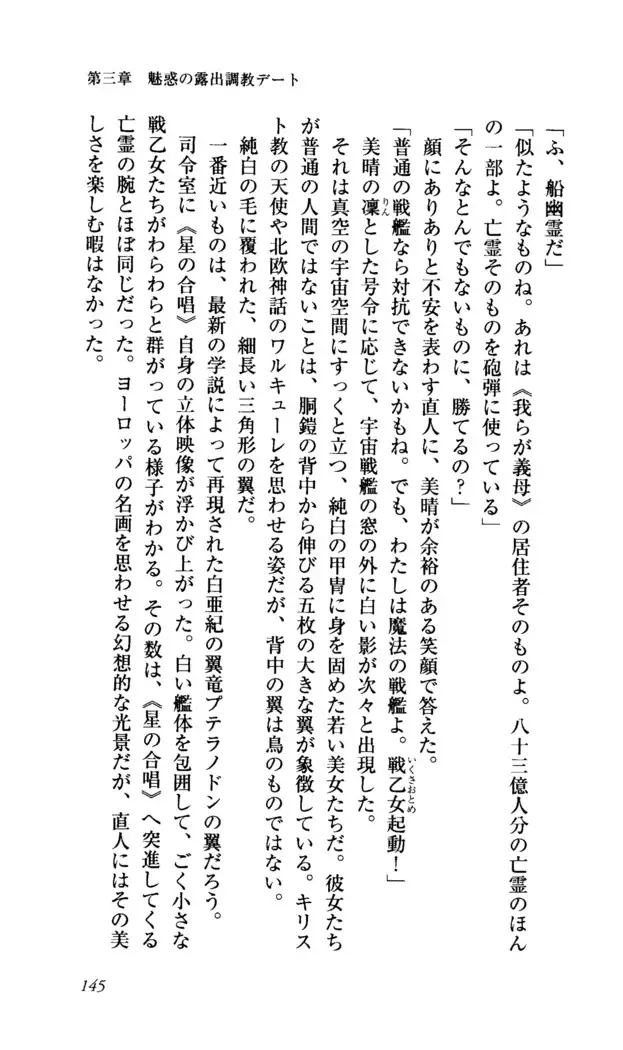 第三章　魅惑の露出調教デート
「ふ、船幽霊だ」
「似たようなものね。あれは《我らが義母》の居住者そのものよ。八十三億人分の亡霊のほん
の一部よ。亡霊そのものを砲弾に使っている」
「そんなとんでもないものに、勝てるの？」
顔にありありと不安を表わす直人に、美晴が余裕のある笑顔で答えた。
「普通の戦艦なら対抗できないかもね。でも、わたしは魔法の戦艦よ。戦乙女起動！」
いくさおとめ
美晴の凜とした号令に応じて、宇宙戦艦の窓の外に白い影が次々と出現した。
りん
それは真空の宇宙空間にすっくと立つ、純白の甲冑に身を固めた若い美女たちだ。彼女たち
が普通の人間ではないことは、胴鎧の背中から伸びる五枚の大きな翼が象徴している。キリス
ト教の天使や北欧神話のワルキューレを思わせる姿だが、背中の翼は鳥のものではない。
純白の毛に覆われた、細長い三角形の翼だ。
一番近いものは、最新の学説によって再現された白亜紀の翼竜プテラノドンの翼だろう。
司令室に《星の合唱》自身の立体映像が浮かび上がった。白い艦体を包囲して、ごく小さな
戦乙女たちがわらわらと群がっている様子がわかる。その数は、《星の合唱》へ突進してくる
亡霊の腕とほぼ同じだった。ヨーロッパの名画を思わせる幻想的な光景だが、直人にはその美
しさを楽しむ暇はなかった。
145